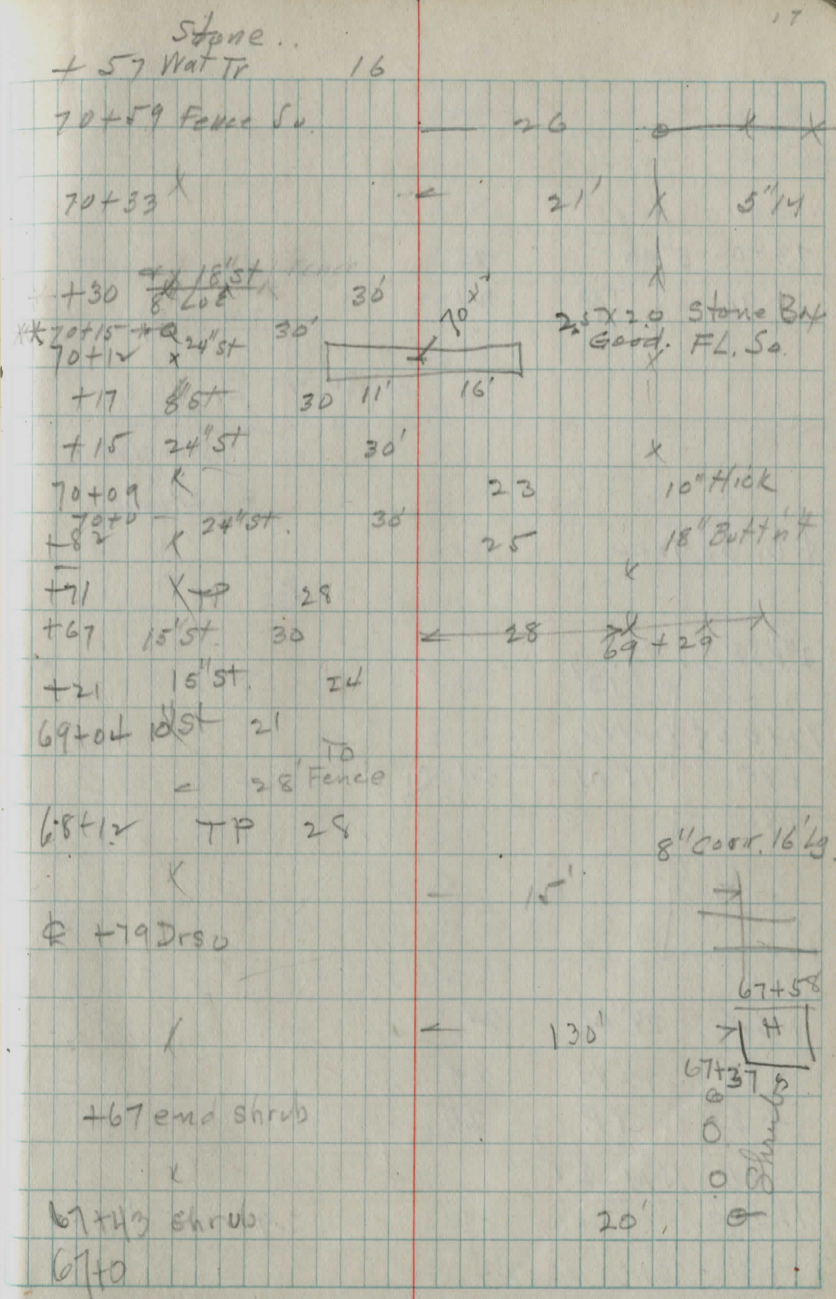 17
Stone..
+57 Wat Tr 16
70+59 Fence So. 26
70+33 21' 5"14
+30 18"St 30'
8" Lot
**70+15 30' 70° 2.5 X 2.0 Stone Box
70+12 x 24"St Good. FL. So.
+17 8"St 30 11' 16'
+15 24"St 30'
70+09 23 10" Hick
70+0 24"St. 30'
+82 25 18" Butt'n't
+71 TP 28
+67 15"St. 30 28 69+29
+21 15"St. 24
69+04 10"St 21
To
28' Fence
68+12 TP 28
8" Corr. 16' Lg.
15'
℄ +79 Dr So
67+58
130' H
67+37
+67 end shrub
Shrubs
67+43 shrub 20'
67+0